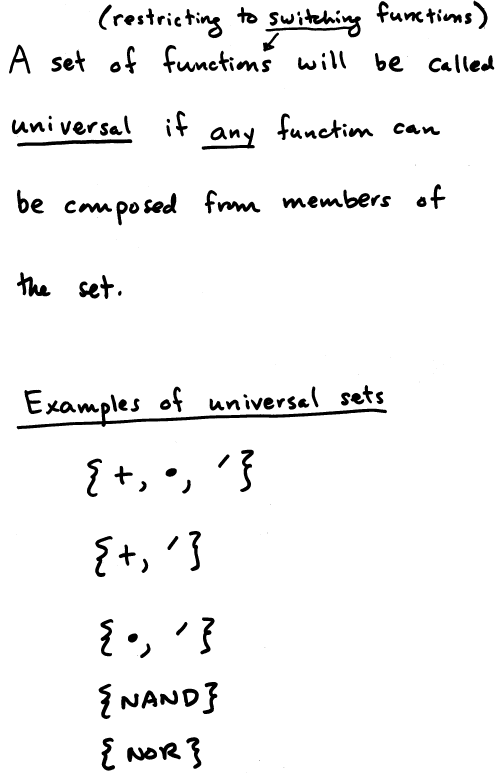 (restricting to switching functions)
A set of functions will be called
universal if any function can
be composed from members of
the set.
Examples of universal sets
{+, •, ′}
{+, ′}
{•, ′}
{NAND}
{NOR}